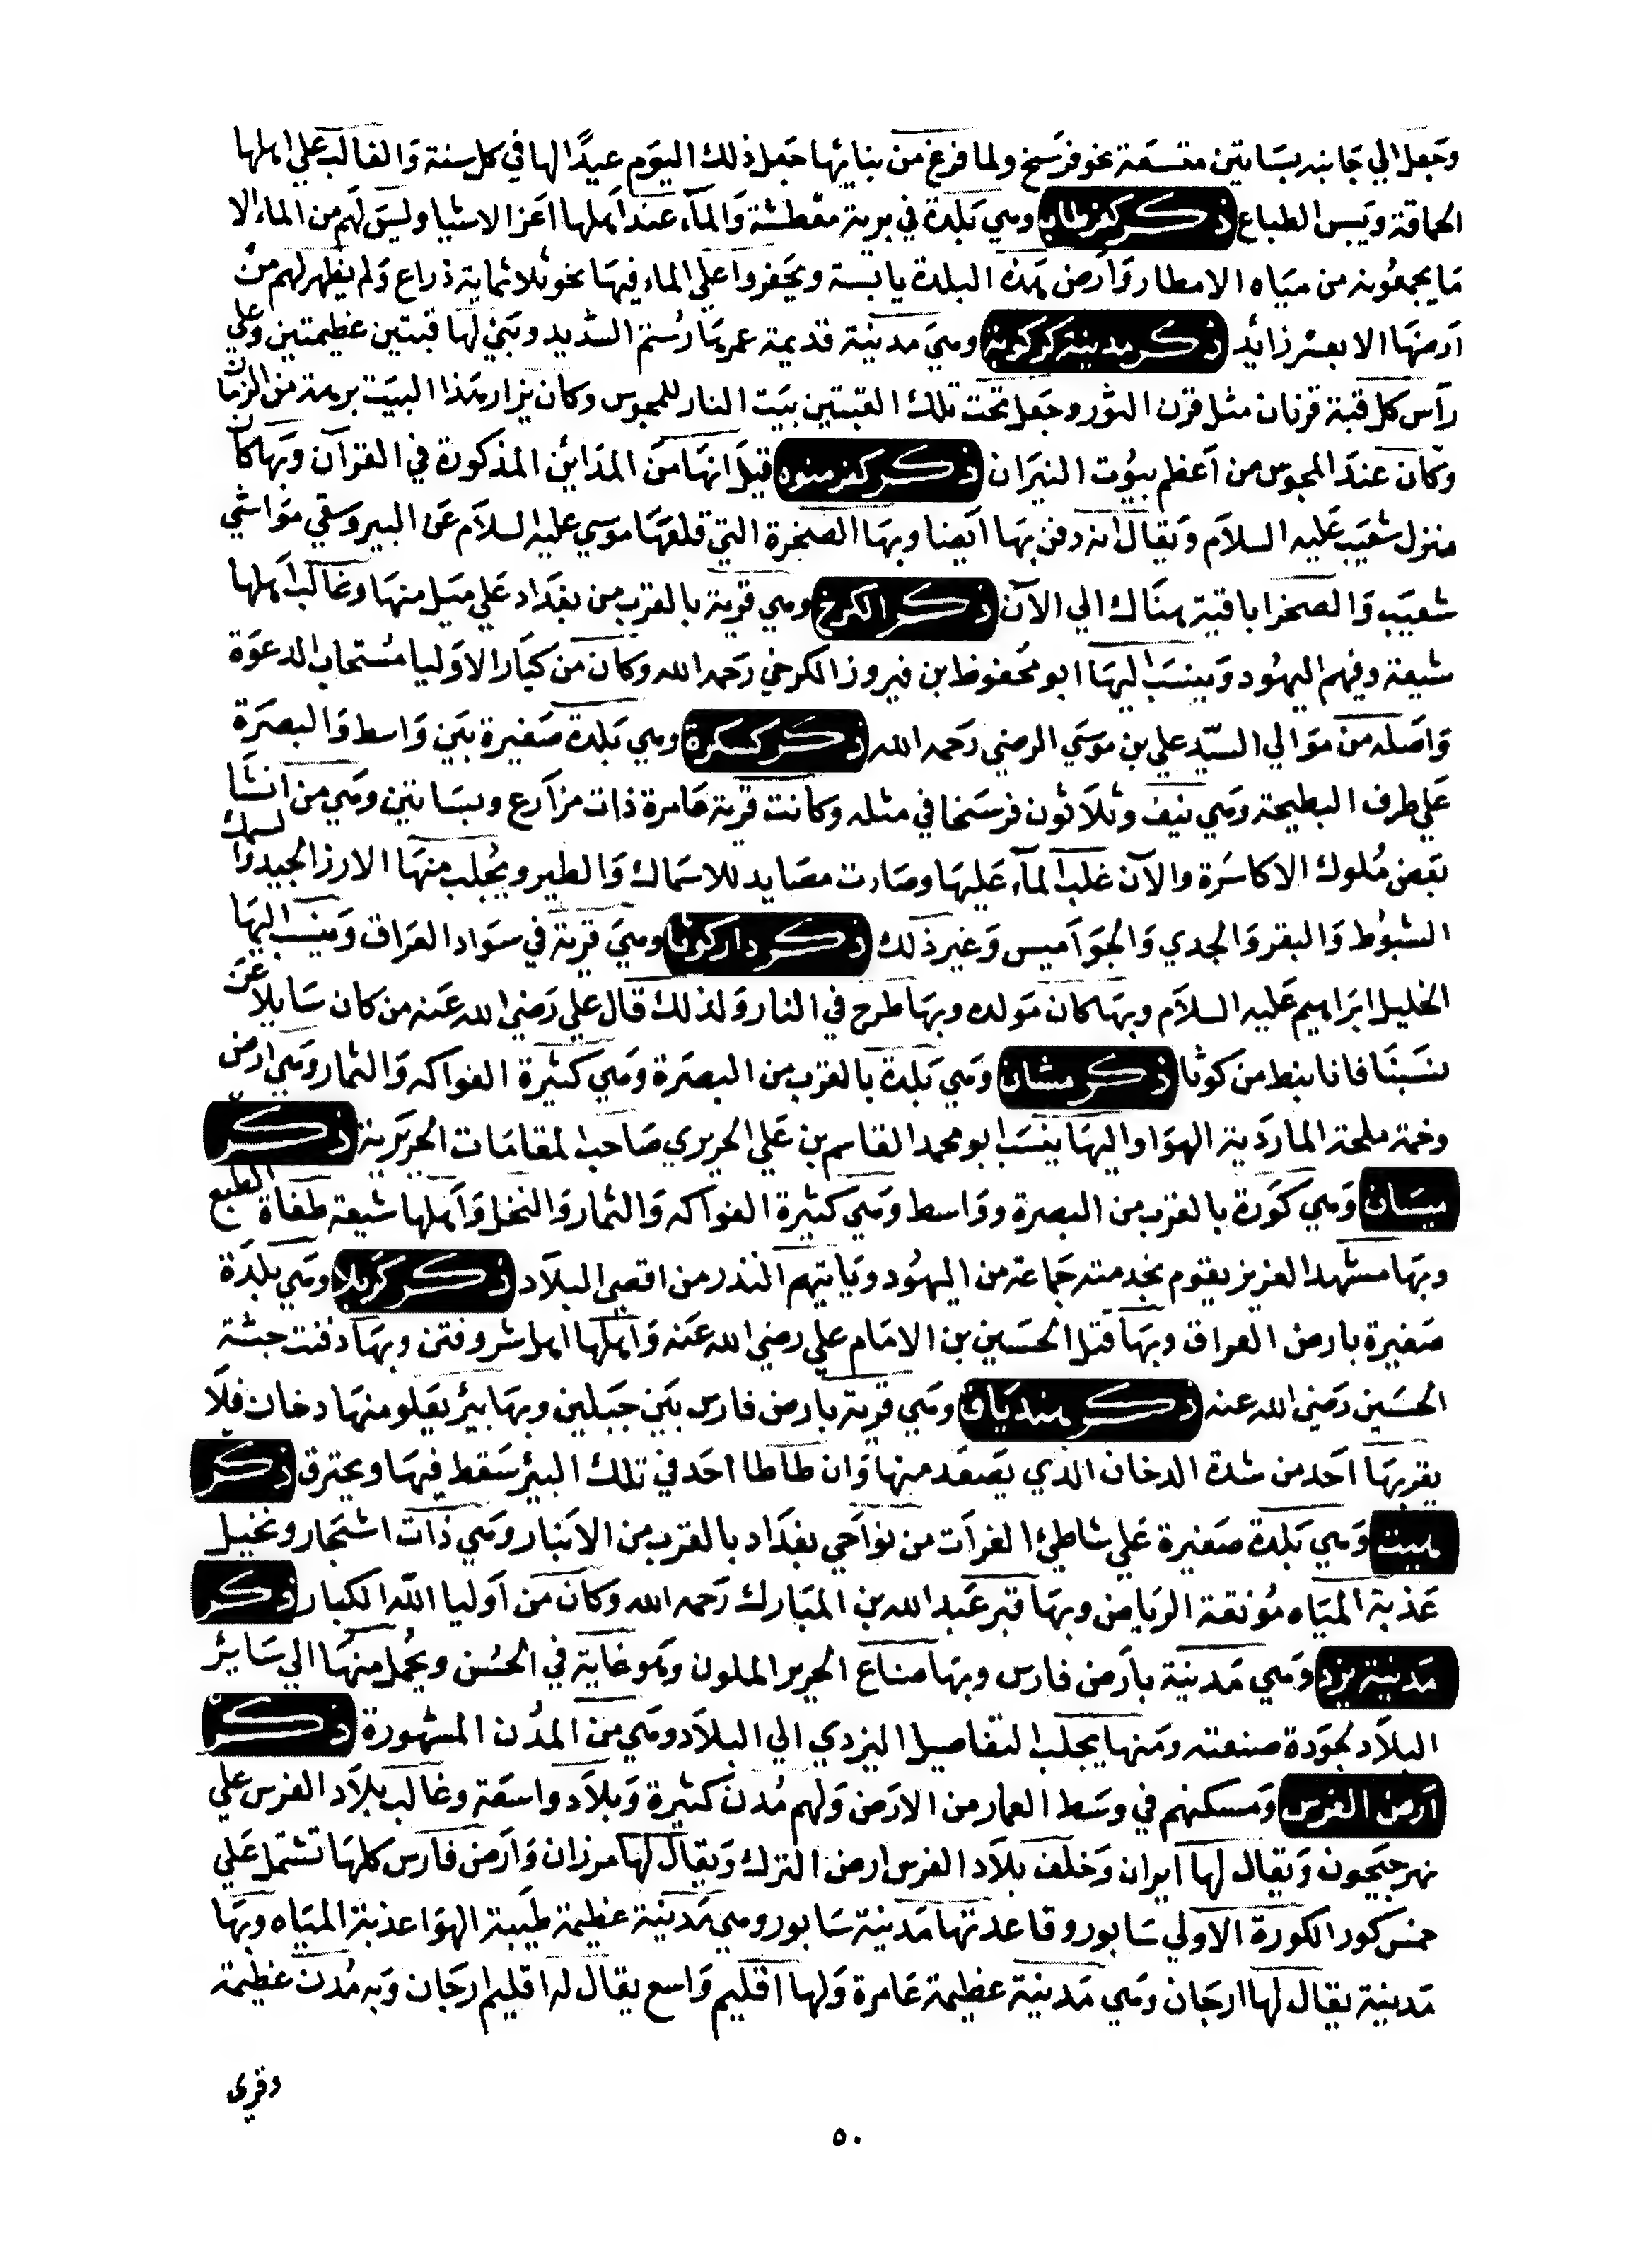 وجعل الي جانبه بساتين متسعة نحو فرسخ ولما فرغ من بنائها جعل ذلك اليوم عيدًا لها في كل سنة والغالب علي اهلها
الحماقة ويبس الطباع ذكر كفرطاب وهي بلدة في برية معطشة والمآء عند اهلها اعز الاشيا وليس لهم من الماء الا
ما يجمعونه من مياه الامطار وارض هذه البلدة يابسة ويحفروا علي الماء فيها نحو ثلاثماية ذراع ولم يظهر لهم من
ارضها الا بعسر زائد ذكر مدينة كركويه وهي مدينة قديمة عمرها رستم السديد وبني لها قبتين عظيمتين وعلي
رأس كل قبة قرنان مثل قرن الثور وجعل تحت تلك القبتين بيت النار للمجوس وكان يزار هذا البيت برهة من الزمان
وكان عند المجوس من اعظم بيوت النيران ذكر كفرمنده قيل انها من المدائن المذكورة في القرآن وبها كان
منزل شعيب عليه السلام ويقال انه دفن بها ايضا وبها الصخرة التي قلعها موسي عليه السلام عن البير وسقي مواشي
شعيب والصخرا باقية هناك الي الآن ذكر الكرخ وهي قرية بالقرب من بغداد علي ميل منها وغالب اهلها
شيعة وفيهم اليهود وينسب اليها ابو محفوظ ابن فيروز الكرخي رحمه الله وكان من كبار الاوليا مستجاب الدعوة
واصله من موالي السيد علي بن موسي الرضي رحمه الله ذكر كسكرة وهي بلدة صغيرة بين واسط والبصرة
علي طرف البطيحة وهي نيف وثلاثون فرسخا في مثله وكانت قرية عامرة ذات مزارع وبساتين وهي من انشا
بعض ملوك الاكاسرة والآن غلب المآء عليها وصارت مصايد للاسماك والطير ويجلب منها الارز الجيد والسمك
الشبوط والبقر والجدي والجواميس وغير ذلك ذكر دار كوثا وهي قرية في سواد العراق وينسب اليها
الخليل ابراهيم عليه السلام وبها كان مولده وبها طرح في النار ولذلك قال علي رضي الله عنه من كان سايلا عن
نسبنا فانا نبط من كوثا ذكر مشان وهي بلدة بالقرب من البصرة وهي كثيرة الفواكه والثمار وهي ارض
وخمة ملحة المآ ردية الهوا واليها ينسب ابو محمد القاسم بن علي الحريري صاحب المقامات الحريرية ذكر
ميسان وهي كورة بالقرب من البصرة وواسط وهي كثيرة الفواكه والثمار والنخل واهلها شيعة طغاة الطبع
وبها مشهد العزيز يقوم بخدمته جماعة من اليهود وياتيهم النذر من اقصي البلاد ذكر كربلا وهي بلدة
صغيرة بارض العراق وبها قتل الحسين بن الامام علي رضي الله عنه واهلها اهل شر وفتن وبها دفنت جثة
الحسين رضي الله عنه ذكر هنديان وهي قرية بارض فارس بين جبلين وبها بئر يعلو منها دخان فلا
يقربها احد من شدة الدخان الذي يصعد منها وان طاطا احد في تلك البير سقط فيها ويحترق ذكر
هيت وهي بلدة صغيرة علي شاطئ الفرات من نواحي بغداد بالقرب من الانبار وهي ذات اشجار ونخيل
عذبة المياه مونقة الرياض وبها قبر عبد الله بن المبارك رحمه الله وكان من اوليا الله الكبار ذكر
مدينة يزد وهي مدينة بارض فارس وبها صناع الحرير الملون وهو غاية في الحسن ويحمل منها الي سائر
البلاد لجودة صنعته ومنها يجلب التفاصيل اليزدي الي البلاد وهي من المدن المشهورة ذكر
ارض الفرس ومسكنهم في وسط العمار من الارض ولهم مدن كثيرة وبلاد واسعة وغالب بلاد الفرس علي
نهر جيحون ويقال لها ايران وخلف بلاد الفرس ارض الترك ويقال لها مرزان وارض فارس كلها تشتمل علي
خمس كور الكورة الاولي سابور وقاعدتها مدينة سابور وهي مدينة عظيمة طيبة الهوا عذبة المياه وبها
مدينة يقال لها ارجان وهي مدينة عظيمة عامرة ولها اقليم واسع يقال له اقليم ارجان وبه مدن عظيمة
وقري
٥٠